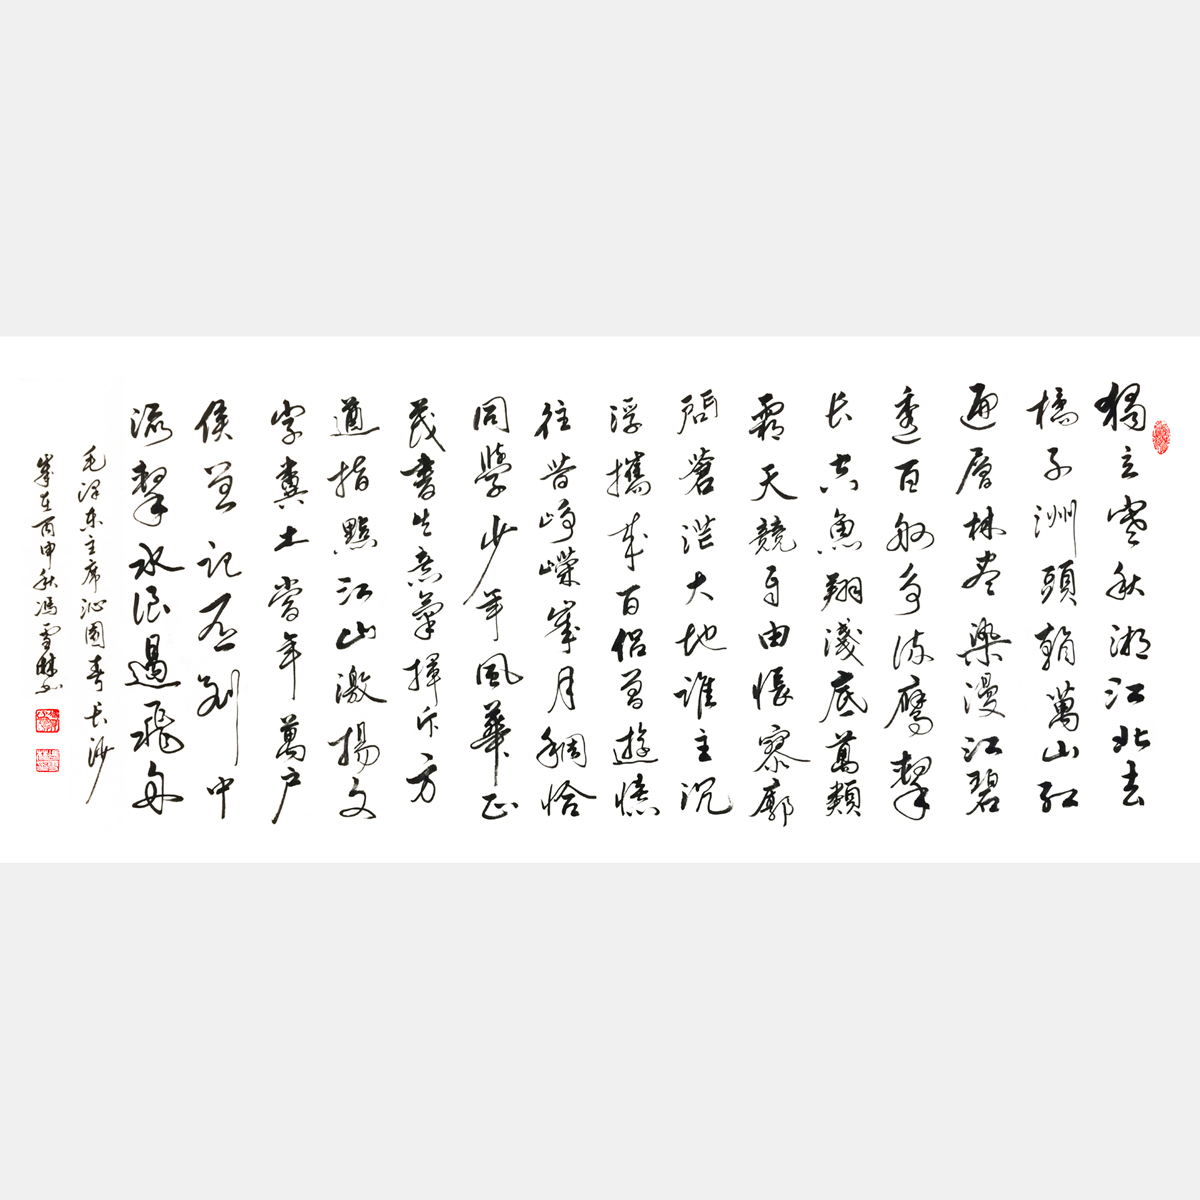 獨立寒秋湘江北去
橘子洲頭看萬山红
遍層林尽染漫江碧
透百舸争流鷹擊
长空魚翔淺底萬類
霜天競自由悵寥廓
問蒼茫大地誰主沉
浮攜来百侣曾遊憶
往昔崢嶸歲月稠恰
同學少年風華正
茂書生意氣揮斥方
遒指點江山激揚文
字糞土當年萬户
侯曾记否到中
流擊水浪遏飛舟
毛泽东主席沁園春长沙
歲在丙申秋馮雪林书